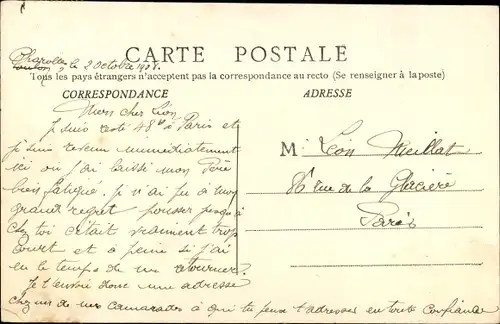 Charolles
le 2 Octobre 1908.
CARTE POSTALE
Tous les pays étrangers n'acceptent pas la correspondance au recto (Se renseigner à la poste)
CORRESPONDANCE
ADRESSE
Mon cher Léon
Je suis resté 48h à Paris et
je suis revenu immédiatement
ici où j'ai laissé mon Père
bien fatigué. Je n'ai pu à mon
grand regret pousser jusqu'à
chez toi c'était vraiment trop
court et à peine si j'ai
eu le temps de me retourner.
Je t'envoie donc une adresse
chez un de mes camarades à qui tu peux t'adresser en toute confiance
M Léon Meillat
86 rue de la Glacière
Paris